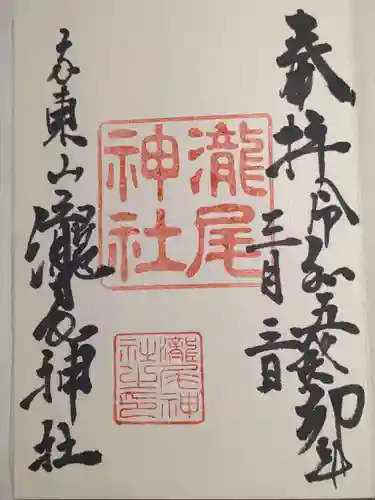 奉拝 令和五年癸卯年
三月三日
瀧尾
神社
京東山 瀧尾神社
瀧尾神
社之印